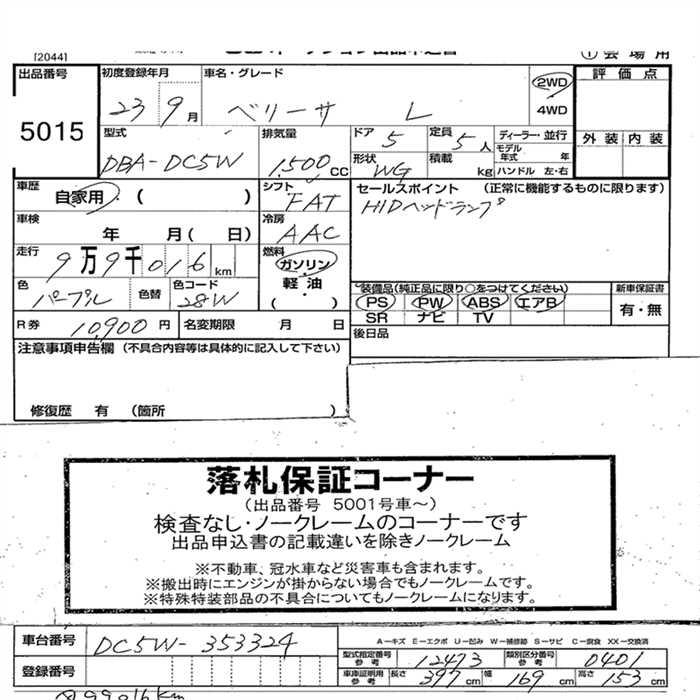 [2044]
① 会場用
出品番号 5015
初度登録年月 23 9月
車名・グレード ベリーサ L
2WD
4WD
評価点
外装 内装
型式 DBA-DC5W
排気量 1,500 CC
ドア 5
定員 5人
形状 WG
積載 kg
ディーラー・並行
モデル年式 年
ハンドル 左・右
車歴 自家用・( )
シフト FAT
セールスポイント (正常に機能するものに限ります)
HIDヘッドランプ
車検 年 月( 日)
冷房 AAC
走行 9万9千016km
燃料 ガソリン・軽油・( )
色 パープル 色替 色コード 28W
装備品(純正品に限り○をつけてください)
PS PW ABS エアB
SR ナビ TV
新車保証書 有・無
R券 10,900円 名変期限 月 日
後日品
注意事項申告欄 (不具合内容等は具体的に記入して下さい)
修復歴 有 (箇所 )
落札保証コーナー
(出品番号 5001号車～)
検査なし・ノークレームのコーナーです
出品申込書の記載違いを除きノークレーム
※不動車、冠水車など災害車も含まれます。
※搬出時にエンジンが掛からない場合でもノークレームです。
※特殊特装部品の不具合についてもノークレームになります。
車台番号 DC5W-353324
A－キズ E－エクボ U－凹み W－補修跡 S－サビ C－腐食 XX－交換済
型式指定番号 参考 12473 類別区分番号 参考 0401
登録番号
車庫証明用 参考 長さ 397cm 幅 169cm 高さ 153cm
99016km